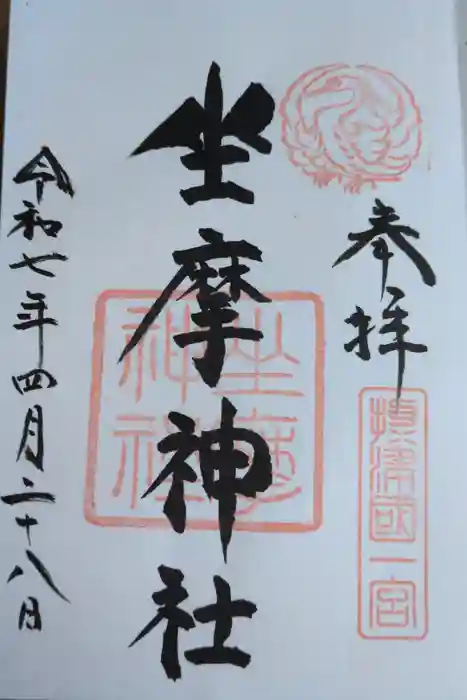 奉拝
摂津国一宮
坐摩神社
坐摩
神社
令和七年四月二十八日